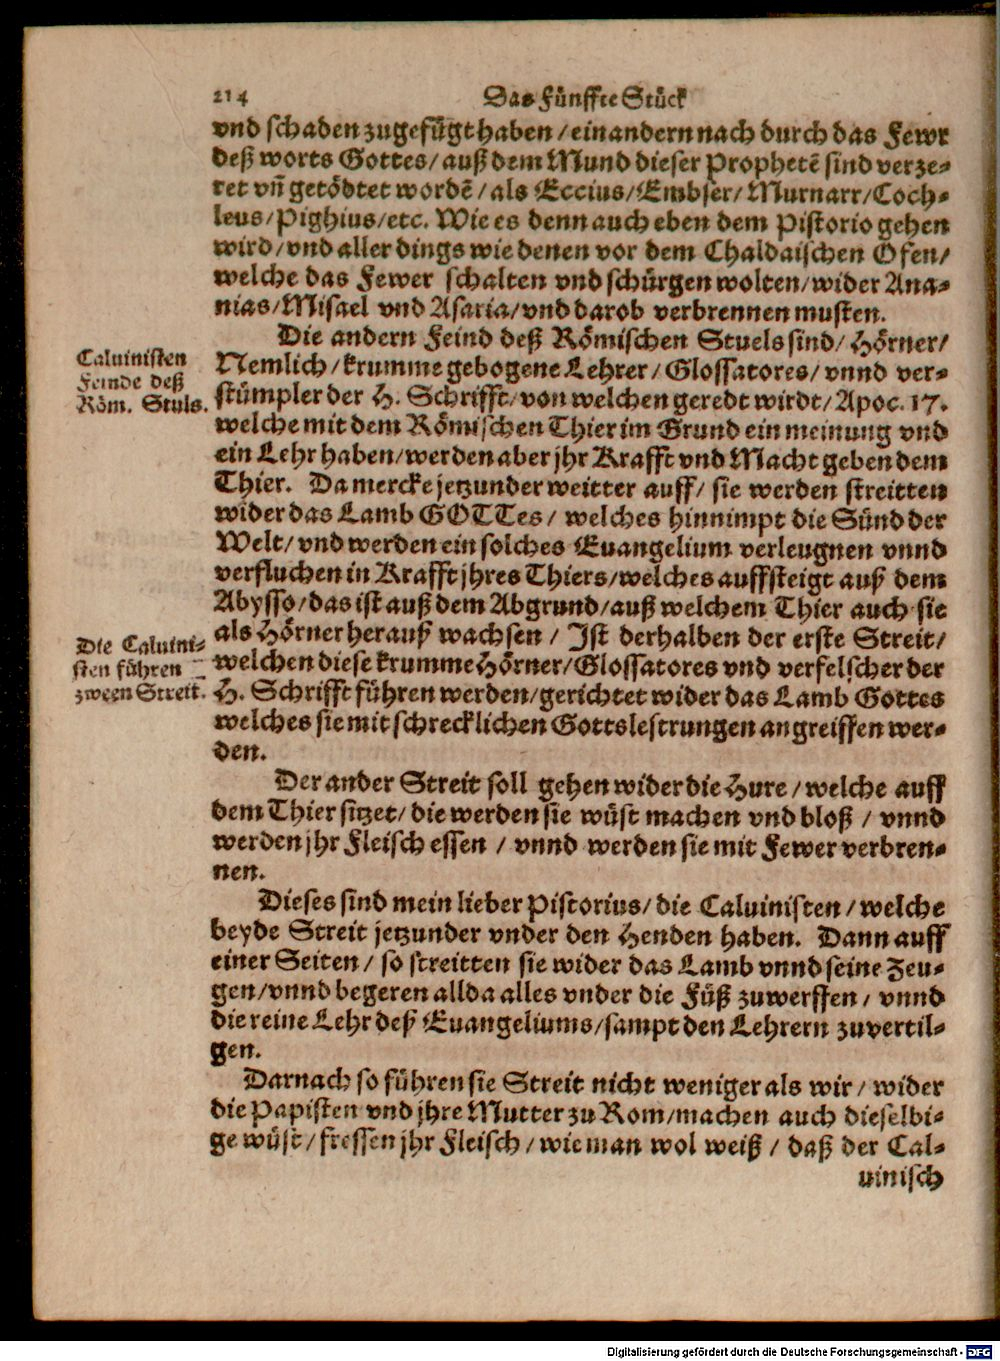 214 Das Fünffte Stück
vnd schaden zugefügt haben / einandern nach durch das Fewr
deß worts Gottes / auß dem Mund dieser Prophetē sind verze-
ret vñ getödtet wordē / als Eccius / Embser / Murnarr / Coch-
leus / Pighius / etc. Wie es denn auch eben dem Pistorio gehen
wird / vnd aller dings wie denen vor dem Chaldaischen Ofen /
welche das Fewer schalten vnd schürgen wolten / wider Ana-
nias / Misael vnd Asaria / vnd darob verbrennen musten.
Die andern Feind deß Römischen Stuels sind / Hörner /
Caluinisten
Feinde deß
Röm. Stuls.
Nemlich / krumme gebogene Lehrer / Glossatores / vnnd ver-
stümpler der H. Schrifft / von welchen geredt wirdt / Apoc. 17.
welche mit dem Römischen Thier im Grund ein meinung vnd
ein Lehr haben / werden aber jhr Krafft vnd Macht geben dem
Thier. Da mercke jetzunder weitter auff / sie werden streitten
wider das Lamb GOTTes / welches hinnimpt die Sünd der
Welt / vnd werden ein solches Euangelium verleugnen vnnd
verfluchen in Krafft jhres Thiers / welches auffsteigt auß dem
Abysso / das ist auß dem Abgrund / auß welchem Thier auch sie
als Hörner herauß wachsen / Ist derhalben der erste Streit /
Die Caluini-
sten führen
zween Streit.
welchen diese krumme Hörner / Glossatores vnd verfelscher der
H. Schrifft führen werden / gerichtet wider das Lamb Gottes
welches sie mit schrecklichen Gottslestrungen angreiffen wer-
den.
Der ander Streit soll gehen wider die Hure / welche auff
dem Thier sitzet / die werden sie wüst machen vnd bloß / vnnd
werden jhr Fleisch essen / vnnd werden sie mit Fewer verbren-
nen.
Dieses sind mein lieber Pistorius / die Caluinisten / welche
beyde Streit jetzunder vnder den Henden haben. Dann auff
einer Seiten / so streitten sie wider das Lamb vnnd seine Zeu-
gen / vnnd begeren allda alles vnder die Füß zuwerffen / vnnd
die reine Lehr deß Euangeliums / sampt den Lehrern zuvertil-
gen.
Darnach so führen sie Streit nicht weniger als wir / wider
die Papisten vnd jhre Mutter zu Rom / machen auch dieselbi-
ge wüst / fressen jhr Fleisch / wie man wol weiß / daß der Cal-
uinisch
Digitalisierung gefördert durch die Deutsche Forschungsgemeinschaft - DFG